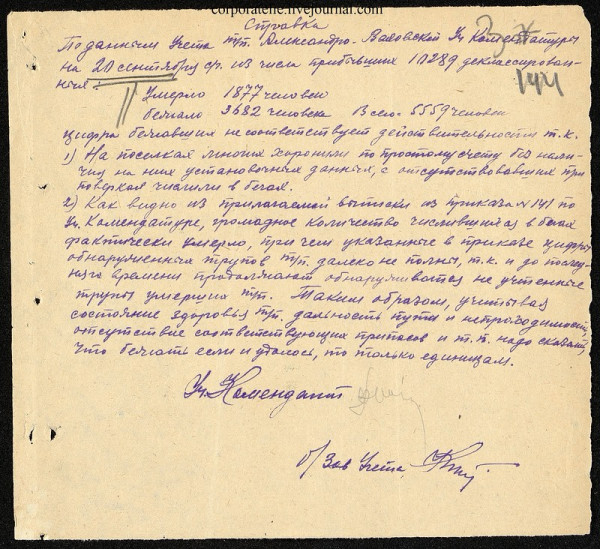 corporatelie.livejournal.com
Справка
По данным Учета т/п. Александро-Ваховской Уч Комендатуры
на 20 сентября с/г. из числа прибывших 10289 деклассирован-
ных:
Умерло 1877 человек
бежало 3682 человека Всего - 5559 человек
Цифра бежавших не соответствует действительности т.к.
1) На поселках многих хоронили по простому счету без нали-
чия на них установочных данных, а отсутствовавших при
поверках числили в бегах.
2) Как видно из прилагаемой выписки из приказа № 141 по
Уч. Комендатуре, громадное количество числившихся в бегах
фактически умерло, при чем указанные в приказе цифры
обнаруженных трупов т/п. далеко не полны, т.к. и до послед-
няго времени продолжают обнаруживатся не учтенные
трупы умерших т/п. Таким образом, учитывая
состояние здоровья т/п. дальность пути и непроходимость,
отсутствие соответствующих припасов и т.п. надо сказать,
что бежать если и удалось, то только единицам.
Уч. Комендант
о/ Зав Учета
144